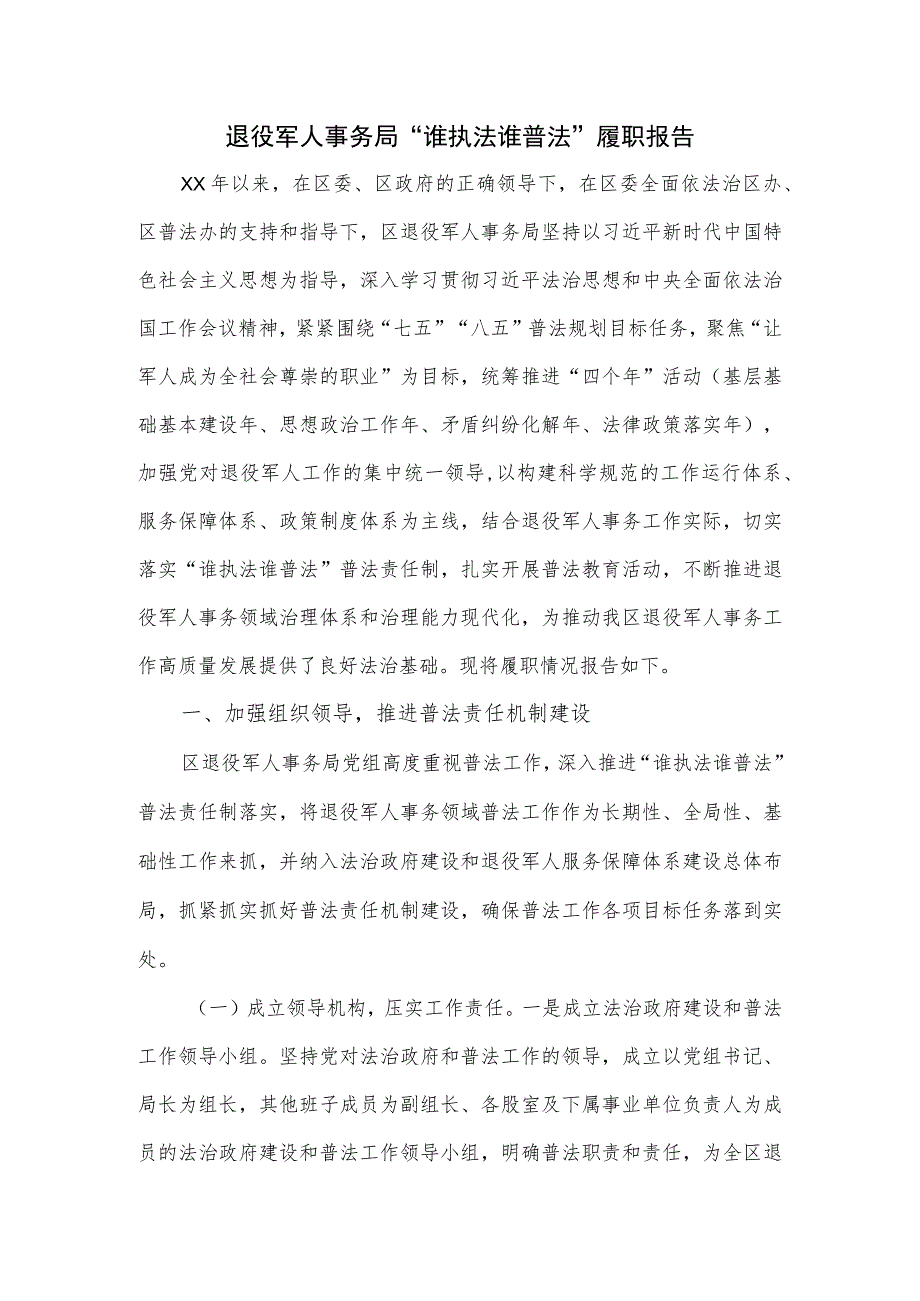 退役军人事务局“谁执法谁普法”履职报告
XX 年以来，在区委、区政府的正确领导下，在区委全面依法治区办、
区普法办的支持和指导下，区退役军人事务局坚持以习近平新时代中国特
色社会主义思想为指导，深入学习贯彻习近平法治思想和中央全面依法治
国工作会议精神，紧紧围绕“七五”“八五”普法规划目标任务，聚焦“让
军人成为全社会尊崇的职业”为目标，统筹推进“四个年”活动（基层基
础基本建设年、思想政治工作年、矛盾纠纷化解年、法律政策落实年），
加强党对退役军人工作的集中统一领导,以构建科学规范的工作运行体系、
服务保障体系、政策制度体系为主线，结合退役军人事务工作实际，切实
落实“谁执法谁普法”普法责任制，扎实开展普法教育活动，不断推进退
役军人事务领域治理体系和治理能力现代化，为推动我区退役军人事务工
作高质量发展提供了良好法治基础。现将履职情况报告如下。
一、加强组织领导，推进普法责任机制建设
区退役军人事务局党组高度重视普法工作，深入推进“谁执法谁普法”
普法责任制落实，将退役军人事务领域普法工作作为长期性、全局性、基
础性工作来抓，并纳入法治政府建设和退役军人服务保障体系建设总体布
局，抓紧抓实抓好普法责任机制建设，确保普法工作各项目标任务落到实
处。
（一）成立领导机构，压实工作责任。一是成立法治政府建设和普法
工作领导小组。坚持党对法治政府和普法工作的领导，成立以党组书记、
局长为组长，其他班子成员为副组长、各股室及下属事业单位负责人为成
员的法治政府建设和普法工作领导小组，明确普法职责和责任，为全区退